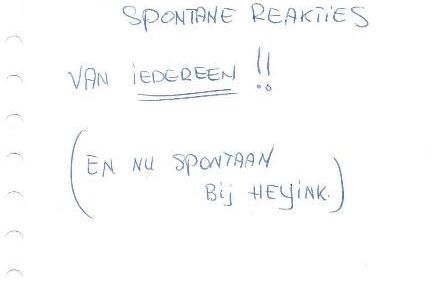 SPONTANE REAKTIES
VAN IEDEREEN !!
(EN NU SPONTAAN
Bij HEYINK.)